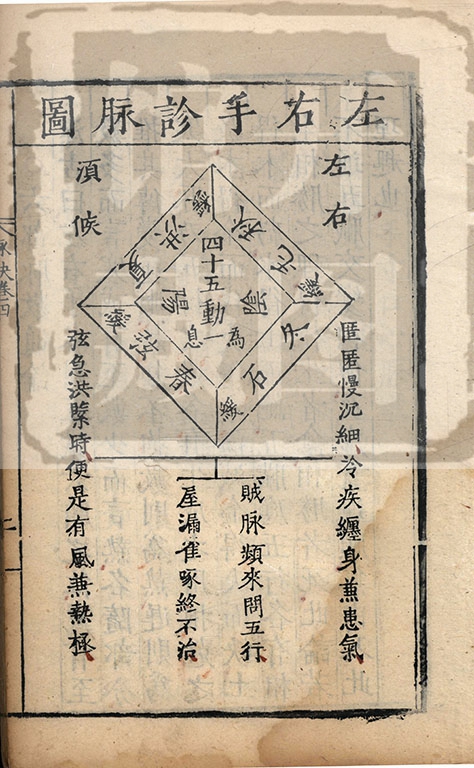 左右手診脉圖
左右
須候
四十五動
為一息
陰
陽
春
弦
緩
夏
洪
緩
秋
毛
緩
冬
石
緩
匪匪慢沉細冷疾纏身兼患氣
賊脉頻來問五行
屋漏雀啄終不治
弦急洪緊時便是有風兼熱極
脉訣卷四